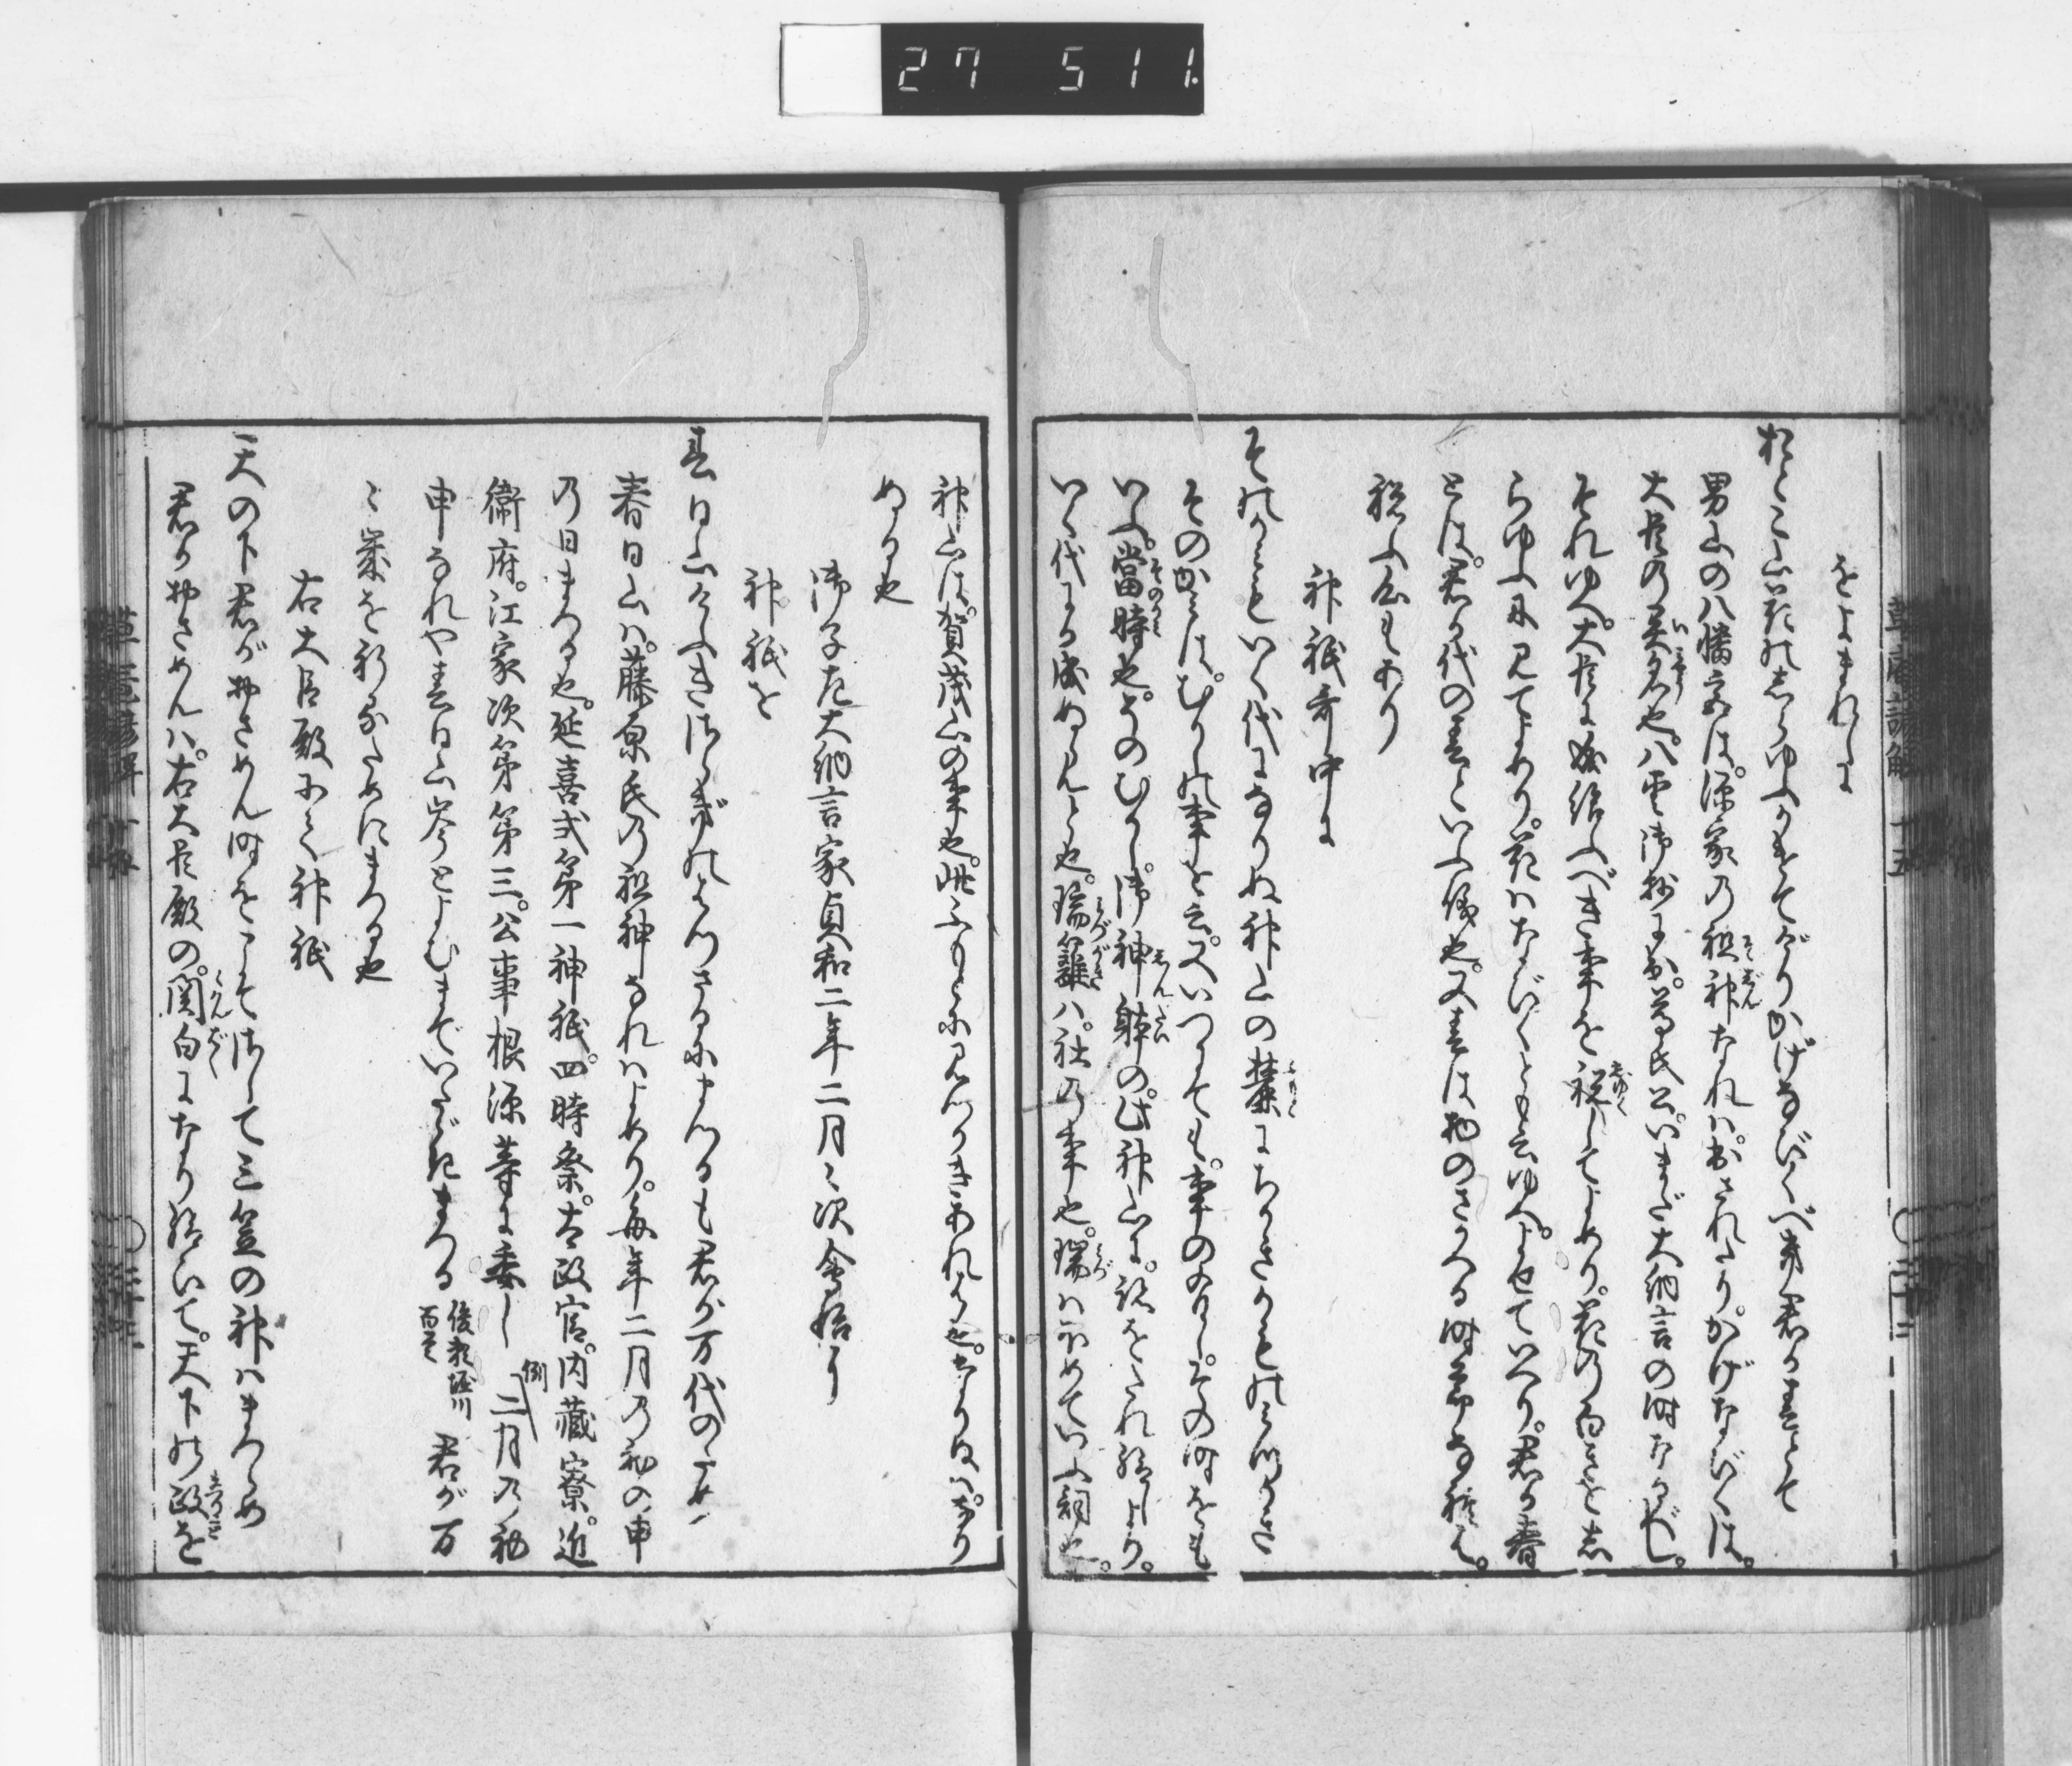 27 511
をよまれしに
おとこ山花のしらゆふかけてけりかげなびくべき君か春とて
男山の八幡宮は。源家の祖神なれハ。出されたり。かげなびくは。
大臣の異名也。八雲御抄に出。尊氏公。いまだ大納言の時なるべし。
それゆへ。大臣に成給ふべき事を祝してよめり。花の白きをし
らゆふに見てよめり。花ハなびくとも云ゆへ。よせていへり。君か春
とは。君か代の春といふ儀也。又春は物のさかへる時節なれは。
祝ふ心もあり
神祇哥中に
そのかみもいく代になりぬ神山の麓にちかきかものみつかき
そのかみは。むかしの事を云。又いつにても。事のありし。その時をも
いふ。當時也。そのむかし。御神躰の。此神山に。跡をたれ給しより。
いく代にか成ぬらんと也。瑞籬ハ。社の事也。瑞ハほめていふ詞也。
神山は。賀茂山の事也。此ふもとにみつかきあれは也。ちかきハ。ちかり
ぬる也
御子左大納言家貞和二年二月々次會始に
神祇を
春日山けふきさらぎのはつさるにまつるも君が万代のため
春日山ハ。藤原氏の祖神なれハよめり。毎年二月の初の申
の日まつる也。延喜式第一神祇。四時祭。太政官。内藏寮。近
衛府。江家次第第三。公事根源等に委し 例 二月の初
申なれや春日山峯とよむまでいたゞきまつる 後頼堀川百首 君が万
々歳を祈るためにまつる也
右大臣殿にて神祇
天の下君がおさめん時をこそさして三笠の神ハまつらめ
君かおさめんハ。右大臣殿の。関白になり給いて。天下の政を